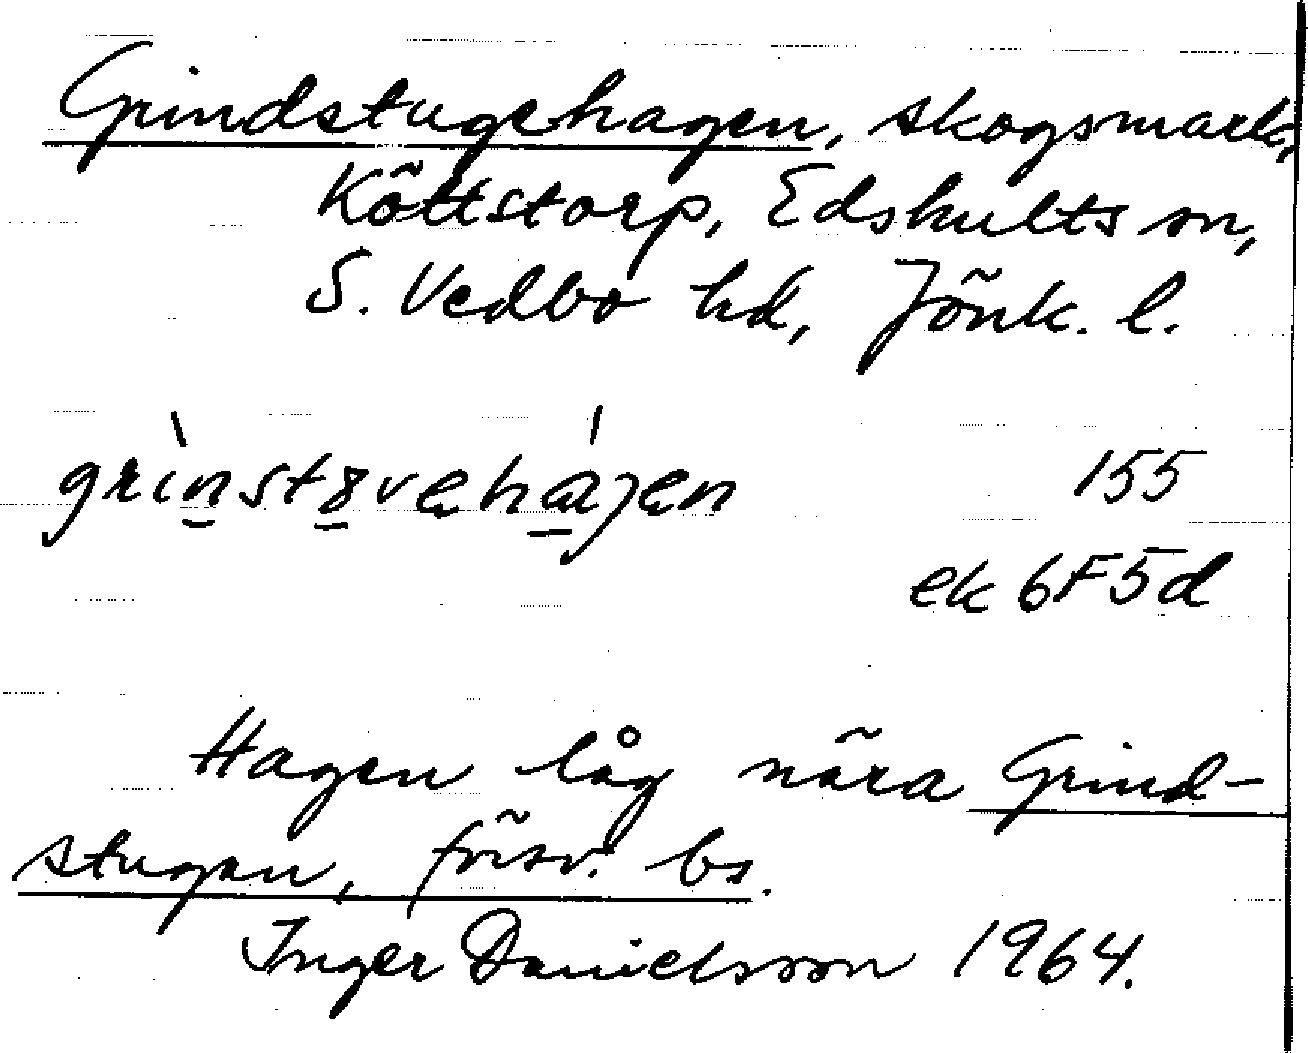 Grindstugehagen, skogsmark,
Köttstorp, Edshults sn,
S. Vedbo hd, Jönk. l.
grìnstȣvehájen 155
ek 6F5d
Hagen låg nära Grind-
stugan, försv. bs.
Inger Danielsson 1964.